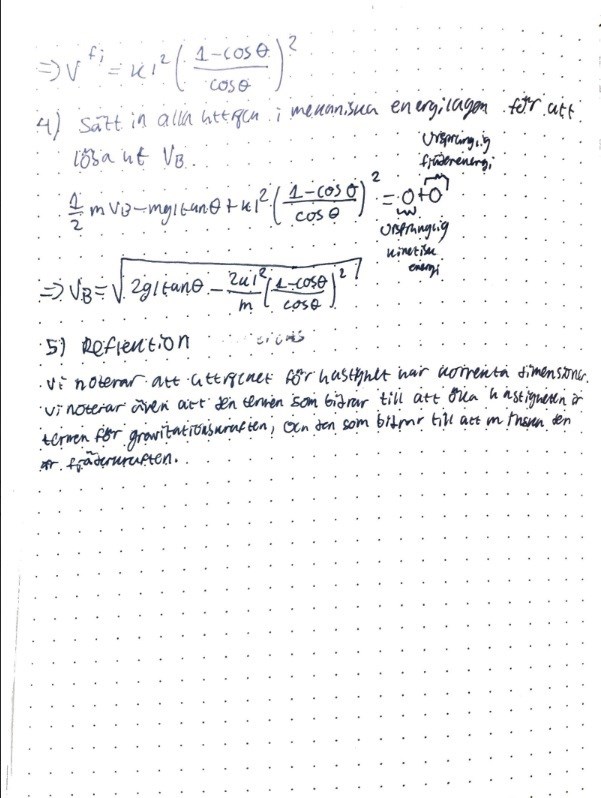 => V^fj = kl² ( (1-cosθ)/cosθ )²
4) Sätt in alla uttrycken i mekaniska energilagen för att
lösa ut V_B.
Ursprunglig
fjäderenergi
1/2 m V_B - mgl tanθ + kl² ( (1-cosθ)/cosθ )² = 0+0
Ursprunglig
kinetisk
energi
=> V_B = √( 2gl tanθ - 2kl²/m ( (1-cosθ)/cosθ )² )
5) Reflektion
Vi noterar att uttrycket för hastighet har korrekta dimensioner.
Vi noterar även att den termen som bidrar till att öka hastigheten är
termen för gravitationskraften, och den som bidrar till att minska den
är fjäderkraften.